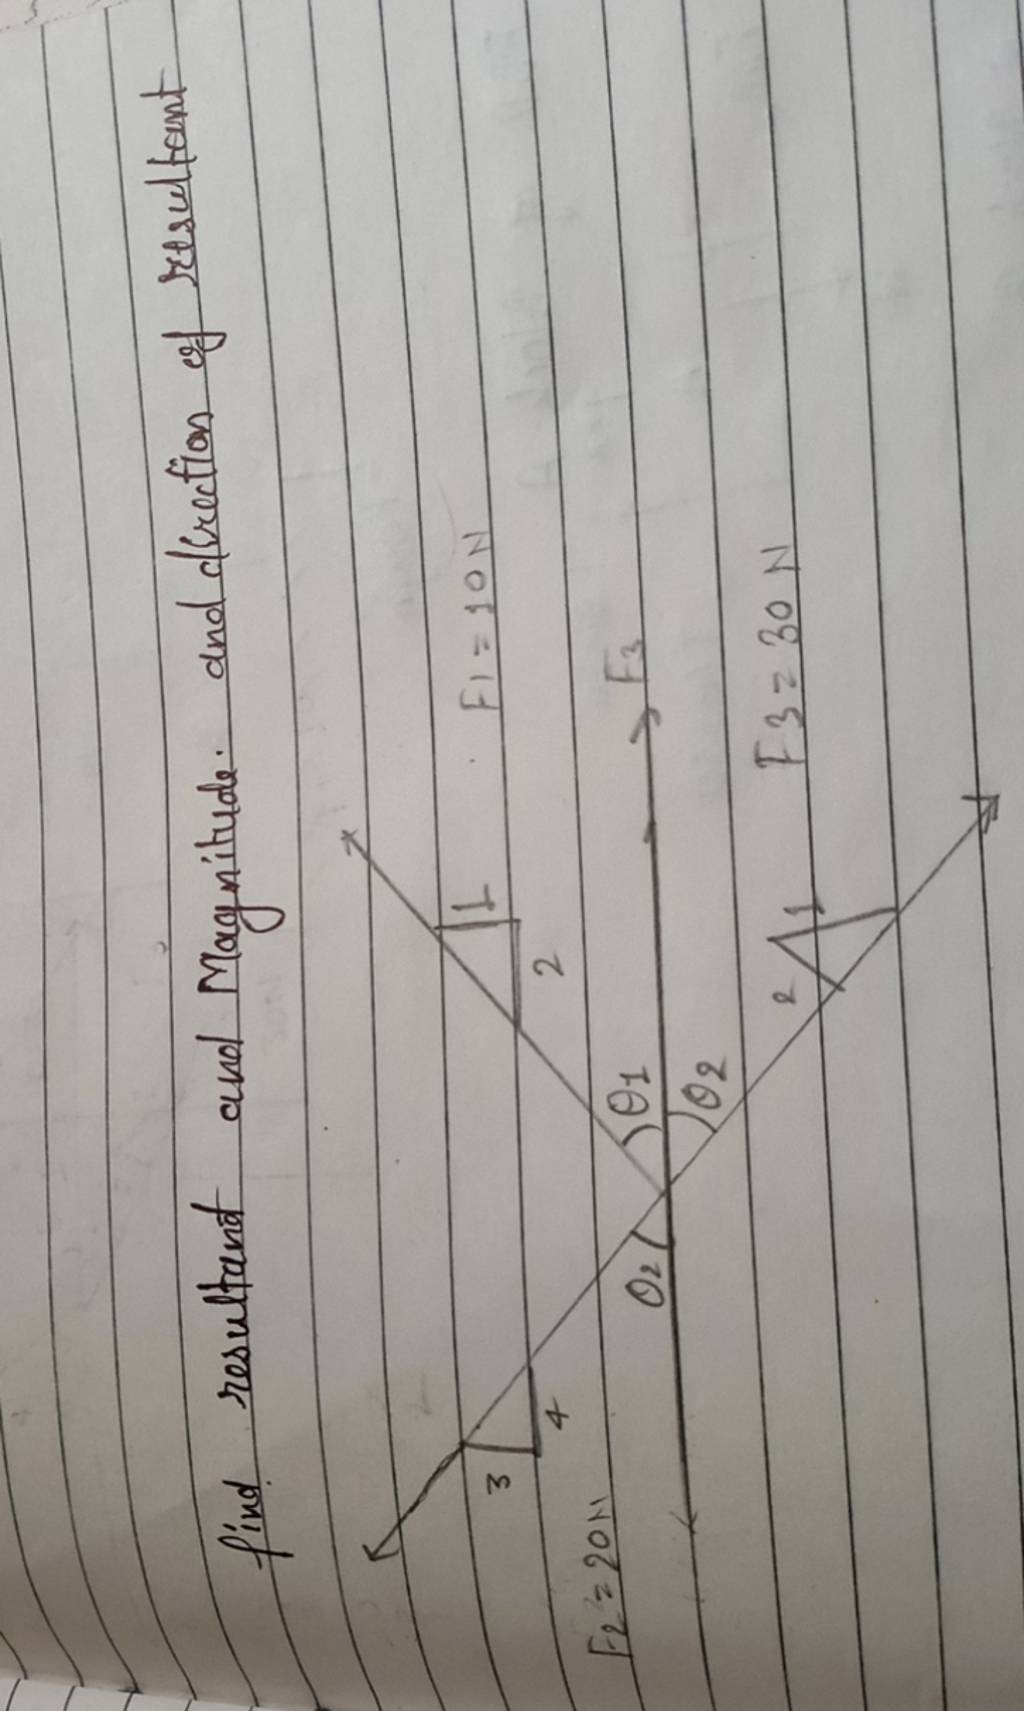 find resultant and Magnitude. and direction of resultant
F1 = 10N
1
2
θ1
F3
3
4
θ2
F2 = 20N
θ2
2
1
F3 = 30N